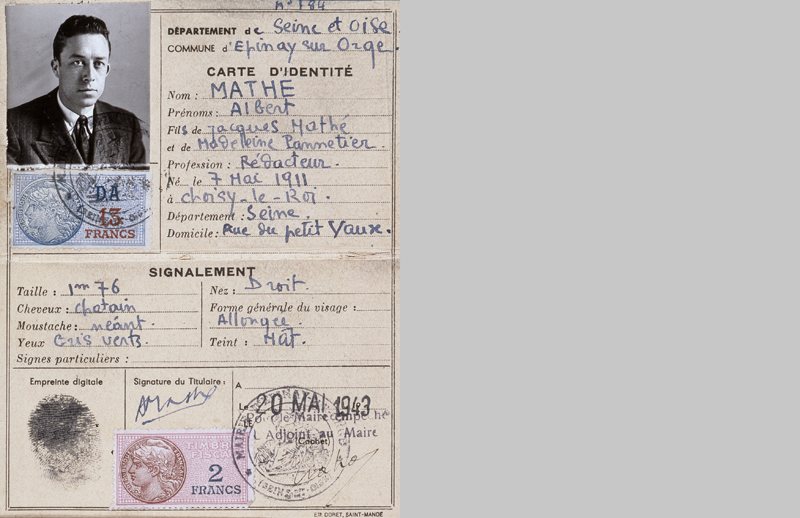 N° 184
DÉPARTEMENT de Seine et Oise
COMMUNE d'Epinay sur Orge.
CARTE D'IDENTITÉ
Nom : MATHE
Prénoms : Albert
Fils de Jacques Mathé
et de Madeleine Pannetier.
Profession : Rédacteur.
Né le 7 Mai 1911
à Choisy-le-Roi.
Département : Seine.
Domicile : Rue du petit Vaux.
DA
13
FRANCS
SIGNALEMENT
Taille : 1m 76
Cheveux : chatain
Moustache : néant.
Yeux Gris verts.
Signes particuliers :
Nez : Droit.
Forme générale du visage :
Allongée.
Teint : Mat.
Empreinte digitale
Signature du Titulaire :
A
Le 20 MAI 1943
Le Maire empêché
L'Adjoint au Maire
(Cachet)
TIMBRE
FISCAL
2
FRANCS
DORET, SAINT-MANDÉ